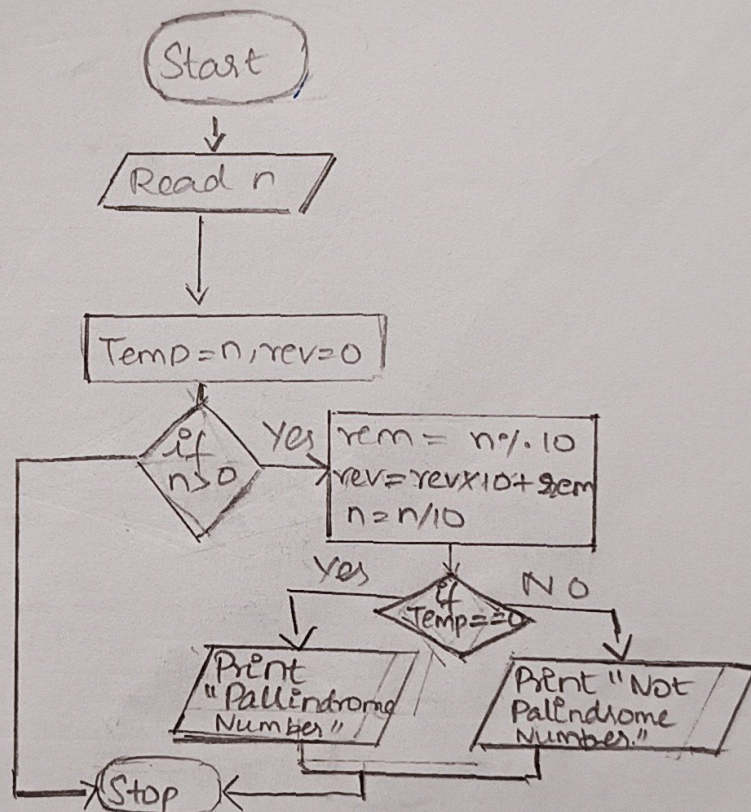 Start
Read n
Temp=n, rev=0
if
n>0
Yes
rem = n%.10
rev=rev×10+rem
n=n/10
Yes
if
Temp==0
NO
Print
"Pallindrome
Number"
Print "Not
Palindrome
Number."
Stop